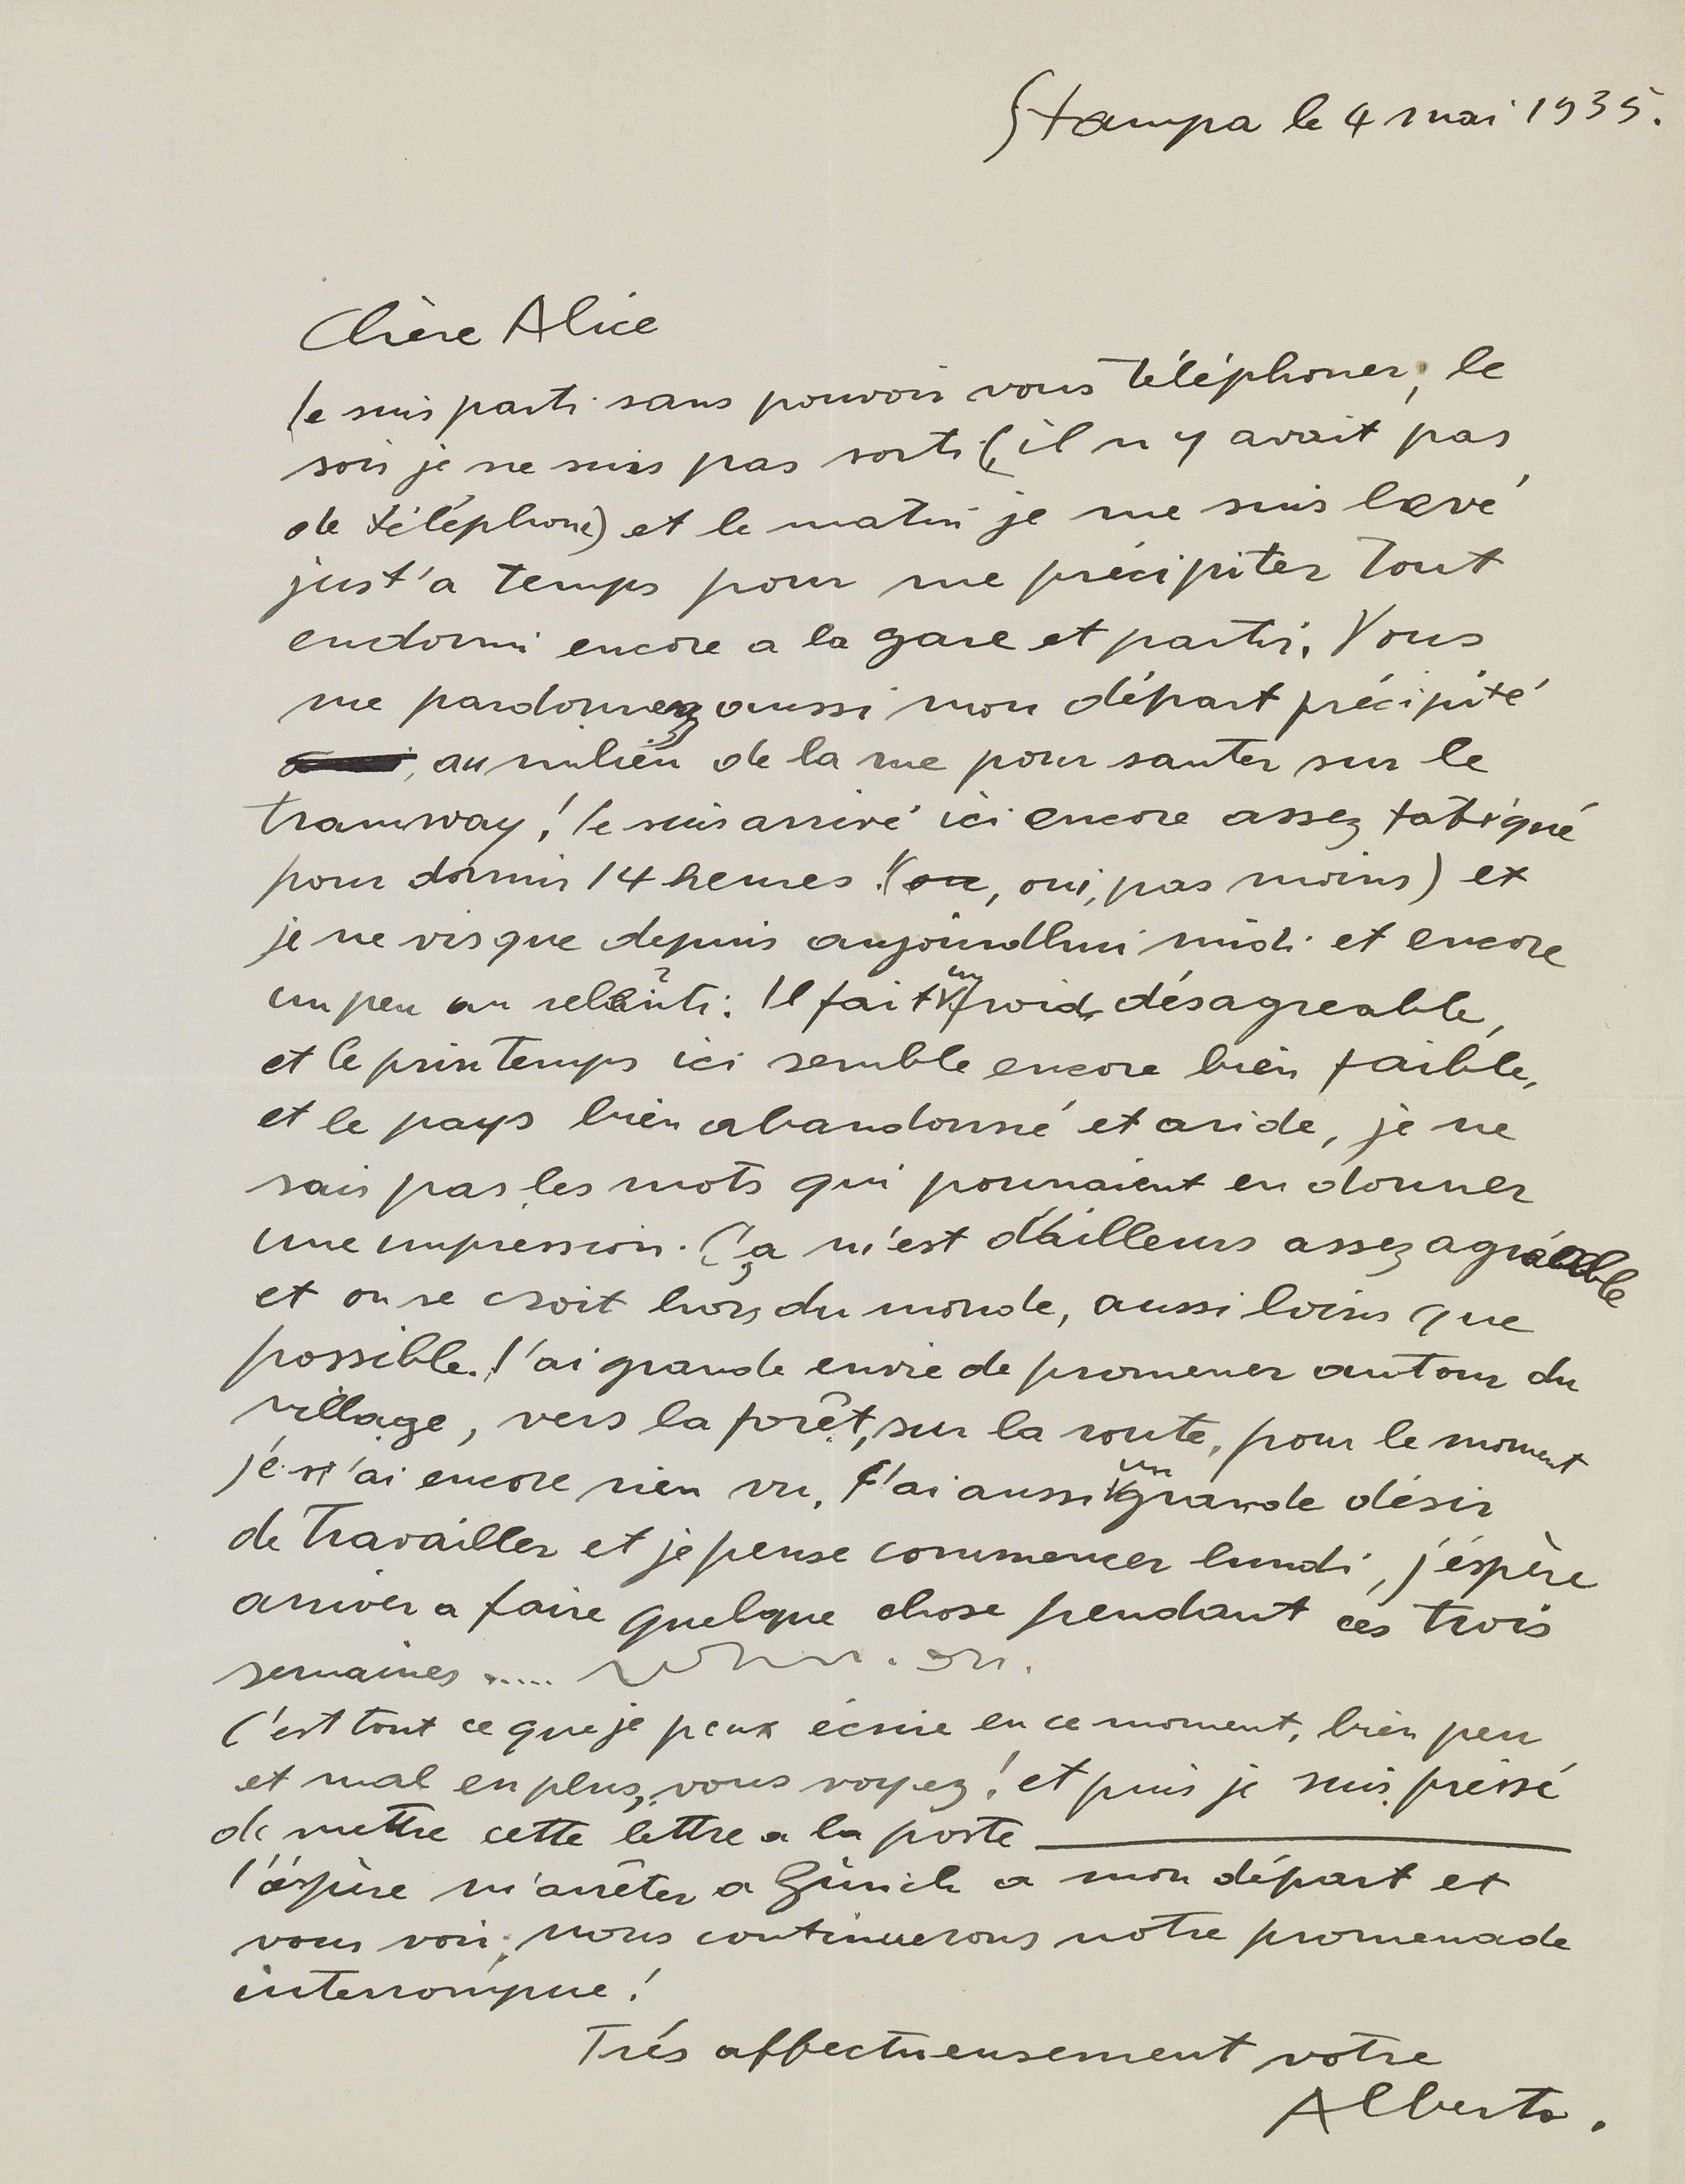 Stampa le 4 mai 1935.
Chère Alice
Je suis parti sans pouvoir vous téléphoner, le
soir je ne suis pas sorti (il n y avait pas
de téléphone) et le matin je me suis levé
just'a temps pour me précipiter tout
endormi encore a la gare et partir. Vous
me pardonnez aussi mon départ précipité
au milieu de la rue pour sauter sur le
tramway! Je suis arrivé ici encore assez fatigué
pour dormir 14 heures! (ou, oui, pas moins) et
je ne vis que depuis aujourdhui midi et encore
un peu au relanti: Il fait un froid désagreable,
et le printemps ici semble encore bien faible,
et le pays bien abandonné et aride, je ne
sais pas les mots qui pourraient en donner
une impression. Ça m'est d'ailleurs assez agréable
et on se croit hors du monde, aussi loins que
possible. J'ai grande envie de promener autour du
village, vers la forêt, sur la route, pour le moment
je n'ai encore rien vu. J'ai aussi un grande désir
de travailler et je pense commencer lundi, j'éspère
arriver a faire quelque chose pendant ces trois
semaines .....
C'est tout ce que je peux écrire en ce moment, bien peu
et mal en plus, vous voyez! et puis je suis pressé
de mettre cette lettre a la poste
J'éspère m'arrêter a Zürich a mon départ et
vous voir, nous continuerons notre promenade
interrompue!
Trés affectueusement votre
Alberto.